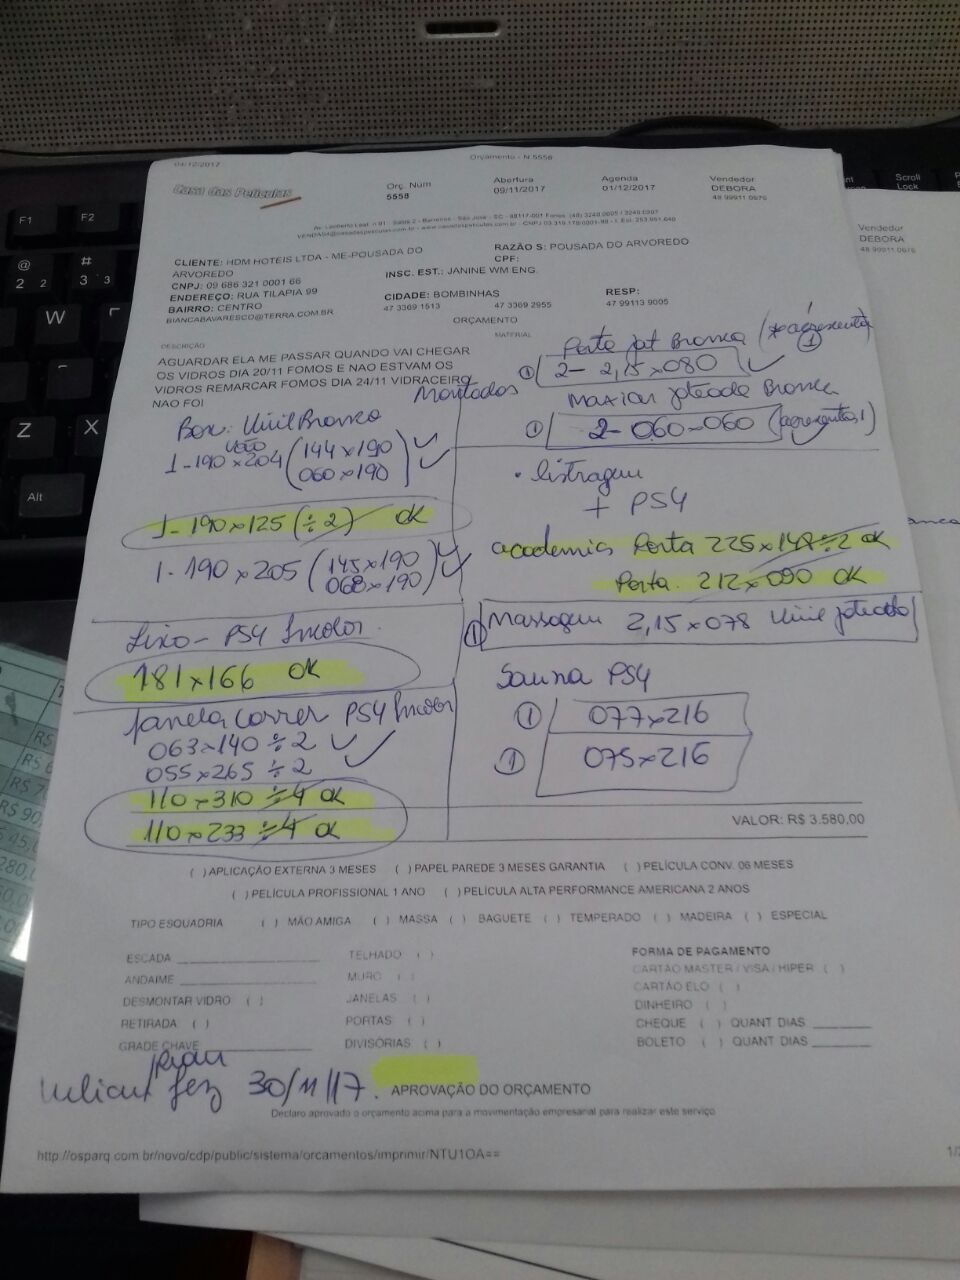 04/12/2017
Orçamento - N 5558
Casa das Películas
Orç. Num
5558
Abertura
09/11/2017
Agenda
01/12/2017
Vendedor
DEBORA
48 99911 0976
CLIENTE: HDM HOTEIS LTDA - ME-POUSADA DO
ARVOREDO
CNPJ: 09 686 321 0001 66
ENDEREÇO: RUA TILAPIA 99
BAIRRO: CENTRO
BIANCABAVARESCO@TERRA.COM.BR
RAZÃO S: POUSADA DO ARVOREDO
CPF:
INSC. EST.: JANINE WM ENG.
CIDADE: BOMBINHAS
47 3369 1513
47 3369 2955
RESP:
47 99113 9005
ORÇAMENTO
DESCRIÇÃO
MATERIAL
AGUARDAR ELA ME PASSAR QUANDO VAI CHEGAR
OS VIDROS DIA 20/11 FOMOS E NAO ESTVAM OS
VIDROS REMARCAR FOMOS DIA 24/11 VIDRACEIRO
NAO FOI
Montados
Box: Vinil Branco
VÃO
1-190x204 (144x190
060x190)
1-190x125 (÷2) OK
1-190x205 (145x190
068x190)
Lixo - PS4 Incolor
181x166 OK
Janela Correr PS4 Incolor
063x140 ÷2
055x265 ÷2
110x310 ÷4 OK
110x233 ÷4 OK
Porta jat Branca
1
2- 2,15x080
Maxiar jateado Branca
1 2- 060x060
• listragem
+ PS4
academia Porta 225x148÷2 OK
Porta. 212x090 OK
1 Massagem 2,15x078 Vinil jateado
Sauna PS4
1 077x216
1 075x216
VALOR: R$ 3.580,00
( ) APLICAÇÃO EXTERNA 3 MESES ( ) PAPEL PAREDE 3 MESES GARANTIA ( ) PELÍCULA CONV. 06 MESES
( ) PELÍCULA PROFISSIONAL 1 ANO ( ) PELÍCULA ALTA PERFORMANCE AMERICANA 2 ANOS
TIPO ESQUADRIA ( ) MÃO AMIGA ( ) MASSA ( ) BAGUETE ( ) TEMPERADO ( ) MADEIRA ( ) ESPECIAL
ESCADA
ANDAIME
DESMONTAR VIDRO ( )
RETIRADA ( )
GRADE CHAVE
TELHADO ( )
MURO ( )
JANELAS ( )
PORTAS ( )
DIVISÓRIAS ( )
FORMA DE PAGAMENTO
CARTÃO MASTER / VISA / HIPER ( )
CARTÃO ELO ( )
DINHEIRO ( )
CHEQUE ( ) QUANT DIAS
BOLETO ( ) QUANT DIAS
fez 30/11/17.
APROVAÇÃO DO ORÇAMENTO
Declaro aprovado o orçamento acima para a movimentação empresarial para realizar este serviço
http://osparq.com.br/novo/cdp/public/sistema/orcamentos/imprimir/NTU1OA==
Vendedor
DEBORA
48 99911 0976
F1
F2
@
2
#
3
W
Z
X
Alt
Scroll
Lock